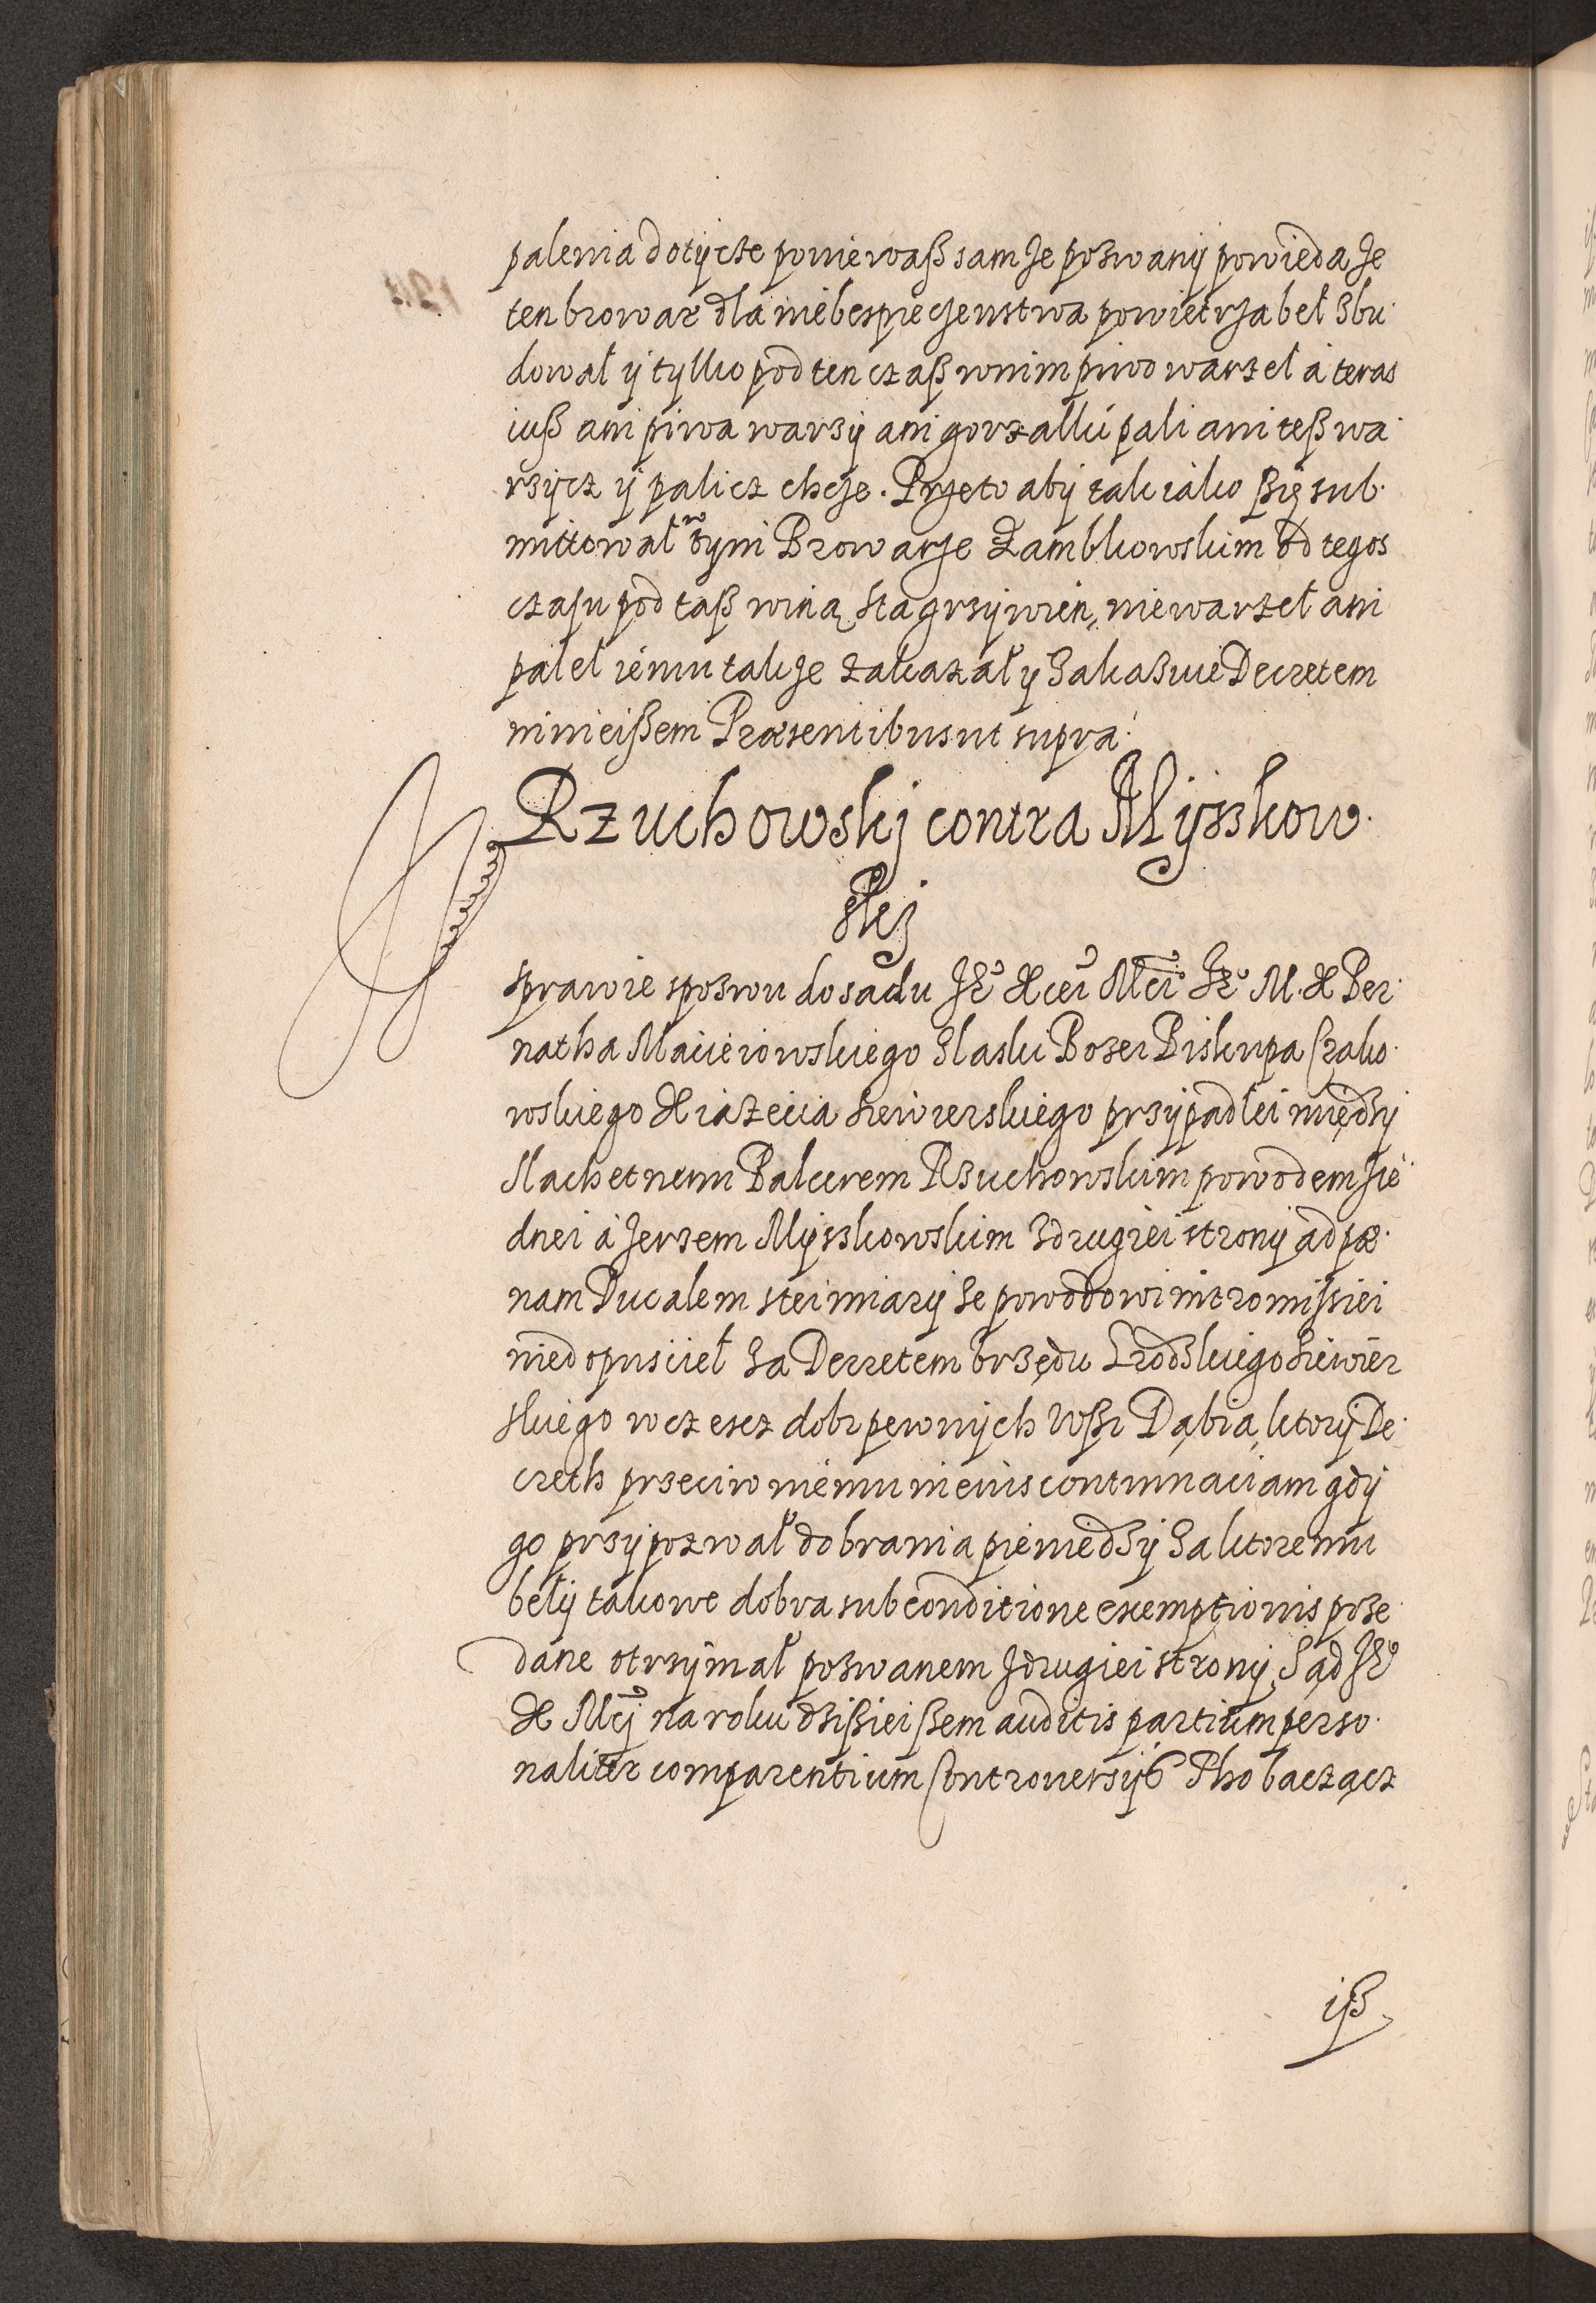 palenia dotycze poniewaß sam ze pozwany powieda ze
ten browar dla niebespieczenstwa powietrza beł zbu
dował y tylko pod ten czaß wnim piwo warzeł a teras
iuß ani piwa warzy ani gorzałki pali ani teß wa
rzycz y palicz chcze. Przeto aby tak iako ßię sub
mittował w tym Browarze Zambkowskim od tegos
czasu pod taß winą sta grzywien, nie warzeł ani
paleł iemu takze zakazał y zakazuie Decretem
ninieißem Præsentibus ut supra.
Rzuchowskj contra Mysskow
skj
W sprawie spozwu do sądu Je° X cei Mći Je° M. X Ber
natha Macieiowskiego z laski Bozei Biskupa Crako
wskiego Xiązecia Siewierskiego przypadłei między
Slachetnem Balcerem Rzuchowskim powodem z ie
dnei a Jerzem Mysskowskim z drugiei strony ad pæ
nam Ducalem z tei miary ze powodowi intromissiei
niedopusciel za Decretem Vrzędu Grodzkiego Siewier
skiego w czesci dobr pewnych wßi Dąbia, ktory De
creth przeciw niemu in eius contumaciam gdy
go przypozwał do brania pieniedzy za ktoremu
beły takowe dobra sub conditione exemptionis prze
dane otrzymał pozwanem z drugiei strony, Sąd Je°
X Mći na roku dzißieißem auditis partium perso
naliter comparentium Controuersys Tho bacząc
iß